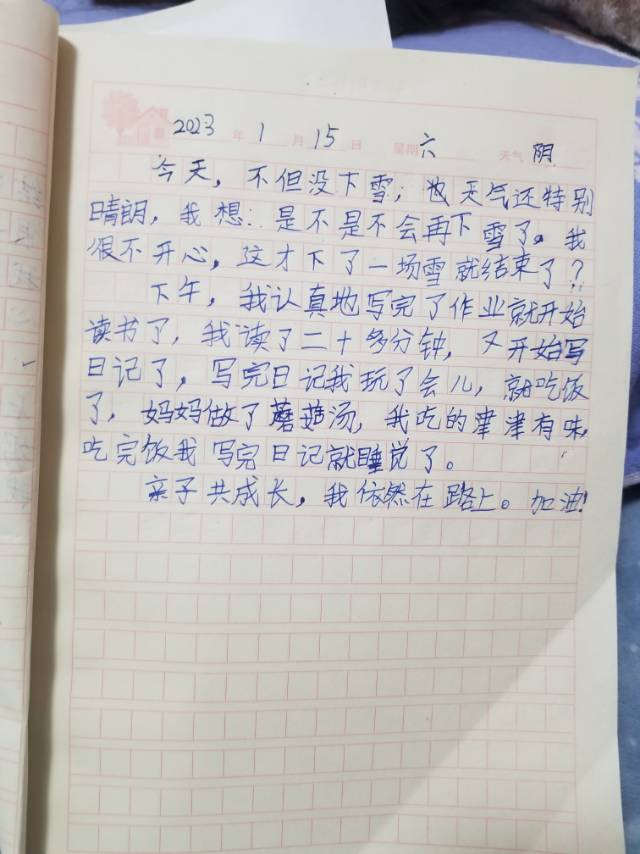 2023年1月15日 星期六 天气阴
今天，不但没下雪；天气还特别
晴朗，我想：是不是不会再下雪了。我
很不开心，这才下了一场雪就结束了？
下午，我认真地写完了作业就开始
读书了，我读了二十多分钟，又开始写
日记了，写完日记我玩了会儿，就吃饭
了，妈妈做了蘑菇汤，我吃的津津有味，
吃完饭我写完日记就睡觉了。
亲子共成长，我依然在路上。加油！